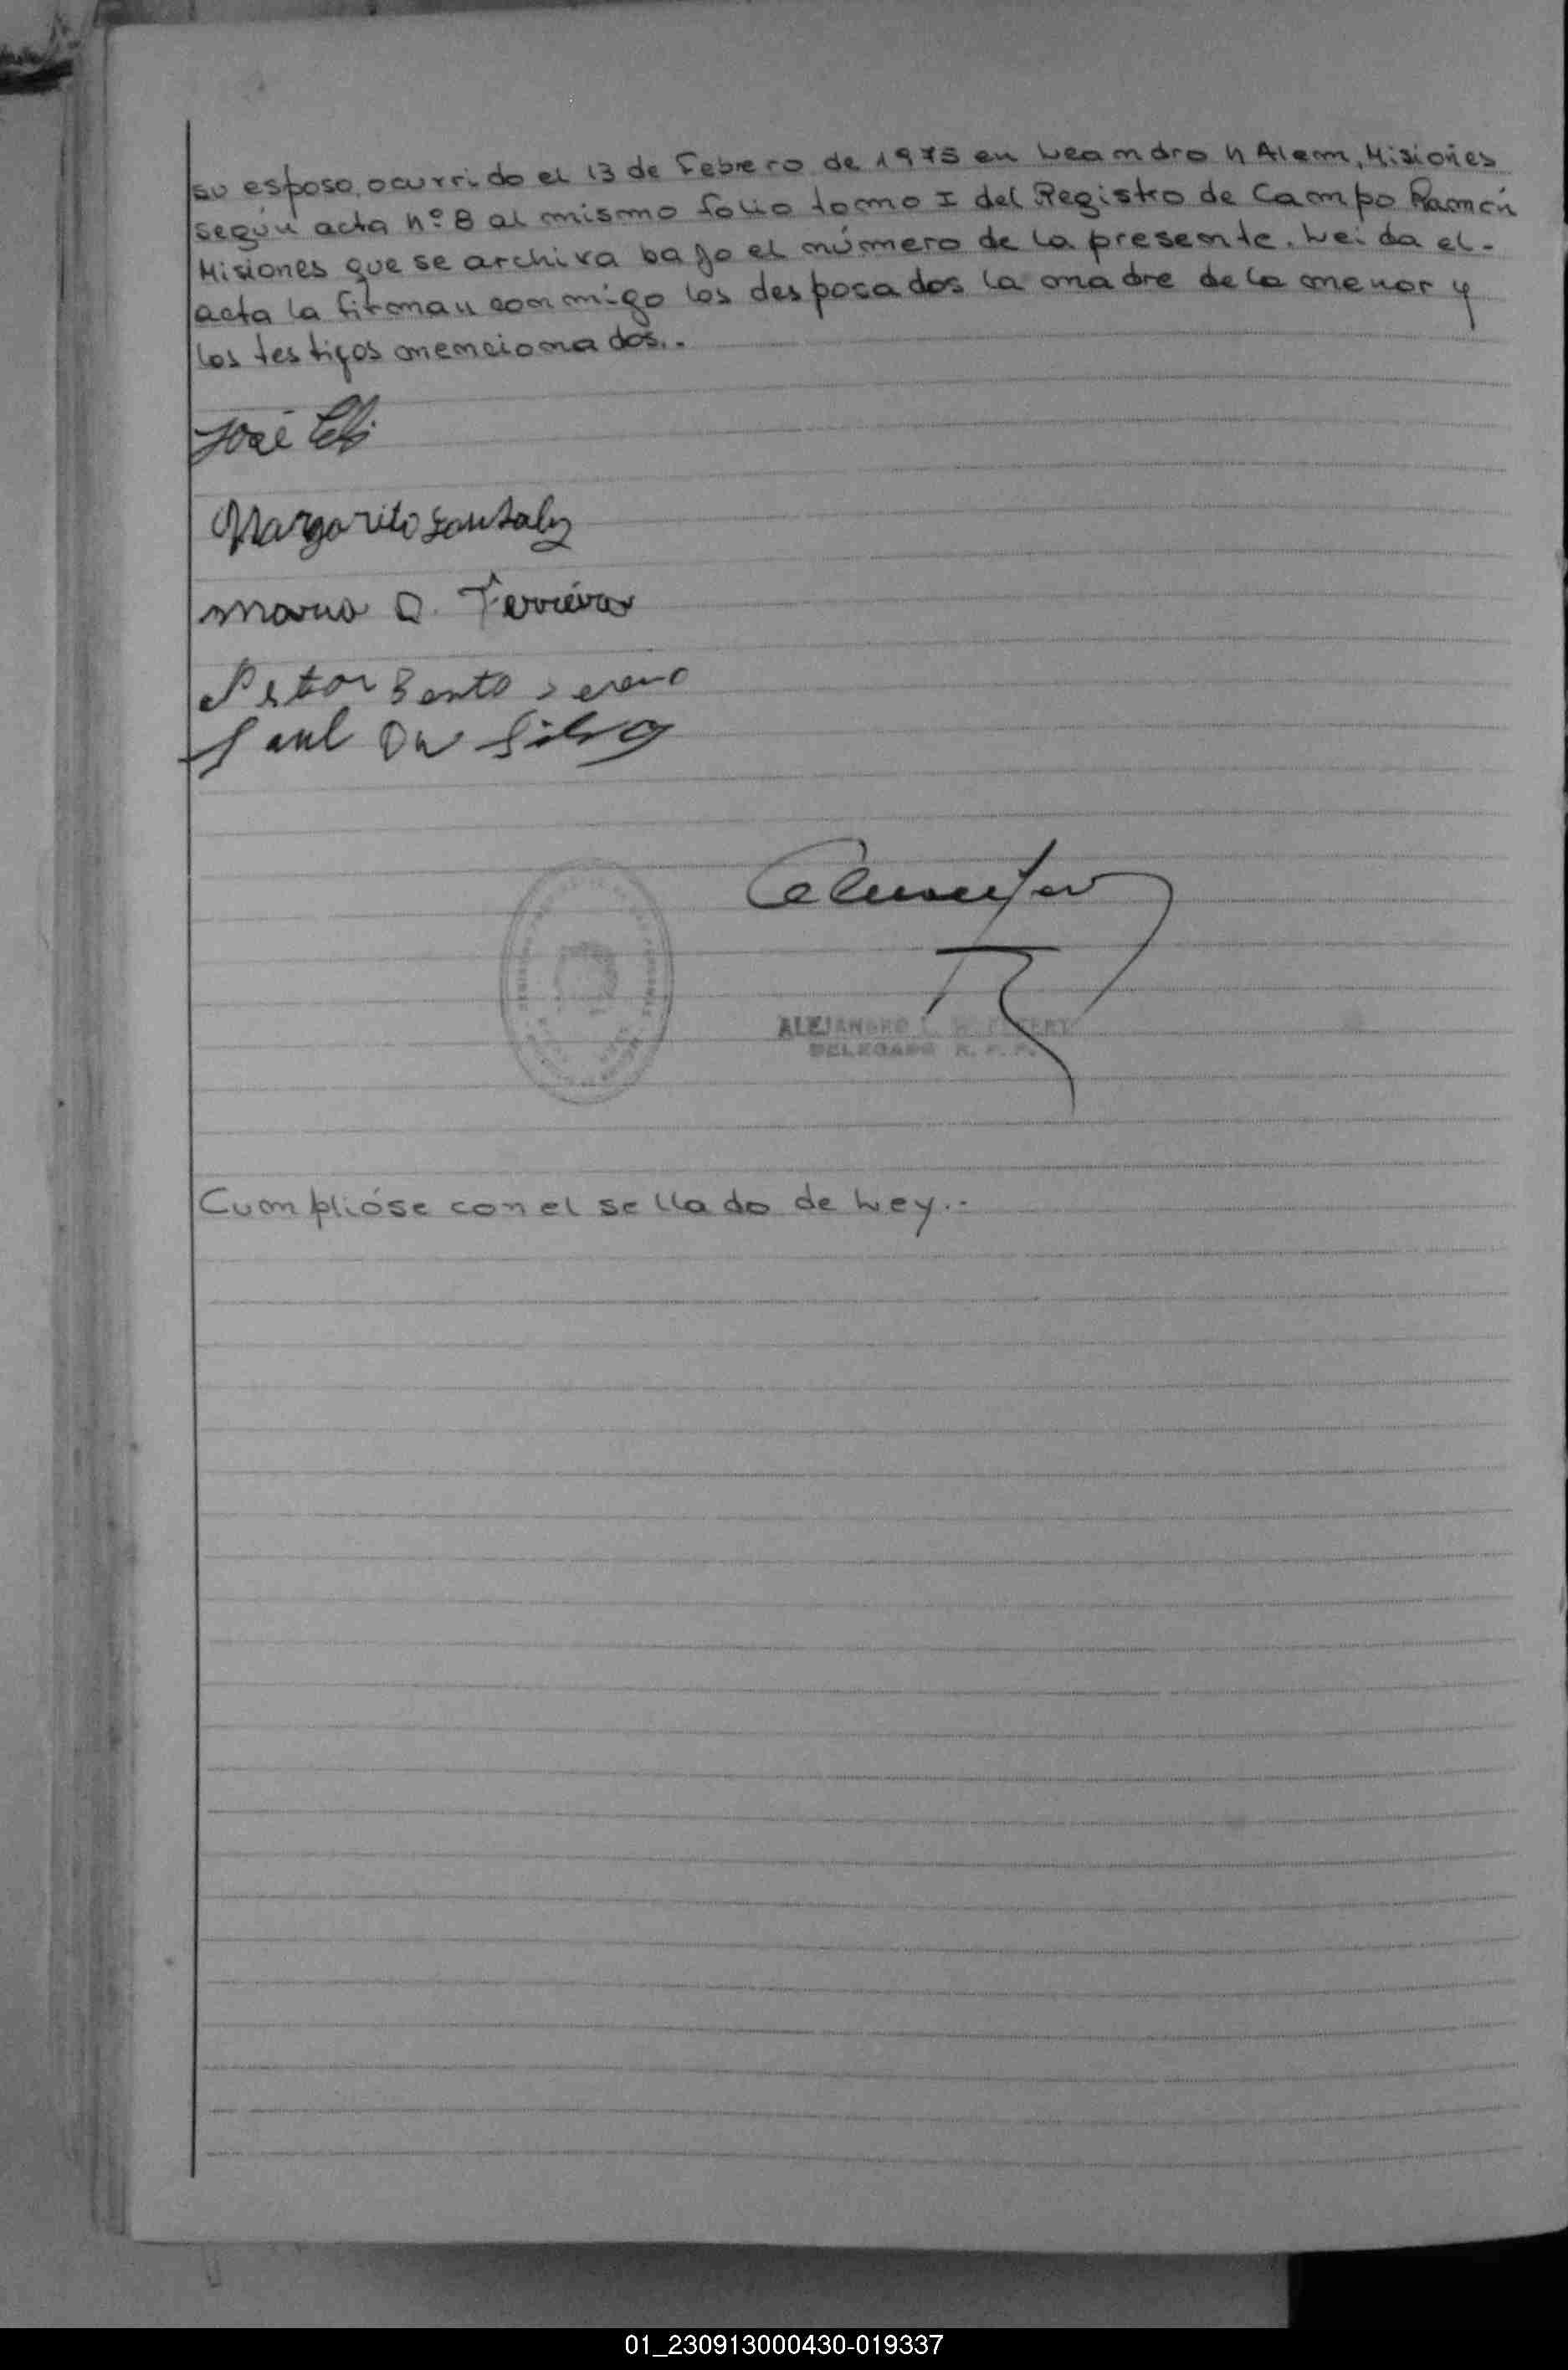 su esposo, ocurrido el 13 de Febrero de 1975 en Leandro N Alem, Misiones
según acta nº 8 al mismo folio tomo I del Registro de Campo Ramón
Misiones que se archiva bajo el número de la presente. Leida el-
acta la firman conmigo los desposados la madre de la menor y
los testigos mencionados..
José
Margarita Gonzalez
Maria D. Ferreira
Nestor Bento
Saul Da Silva
ALEJANDRO L.
DELEGADO R. P. P.
Cumplióse con el sellado de Ley.-
01_230913000430-019337